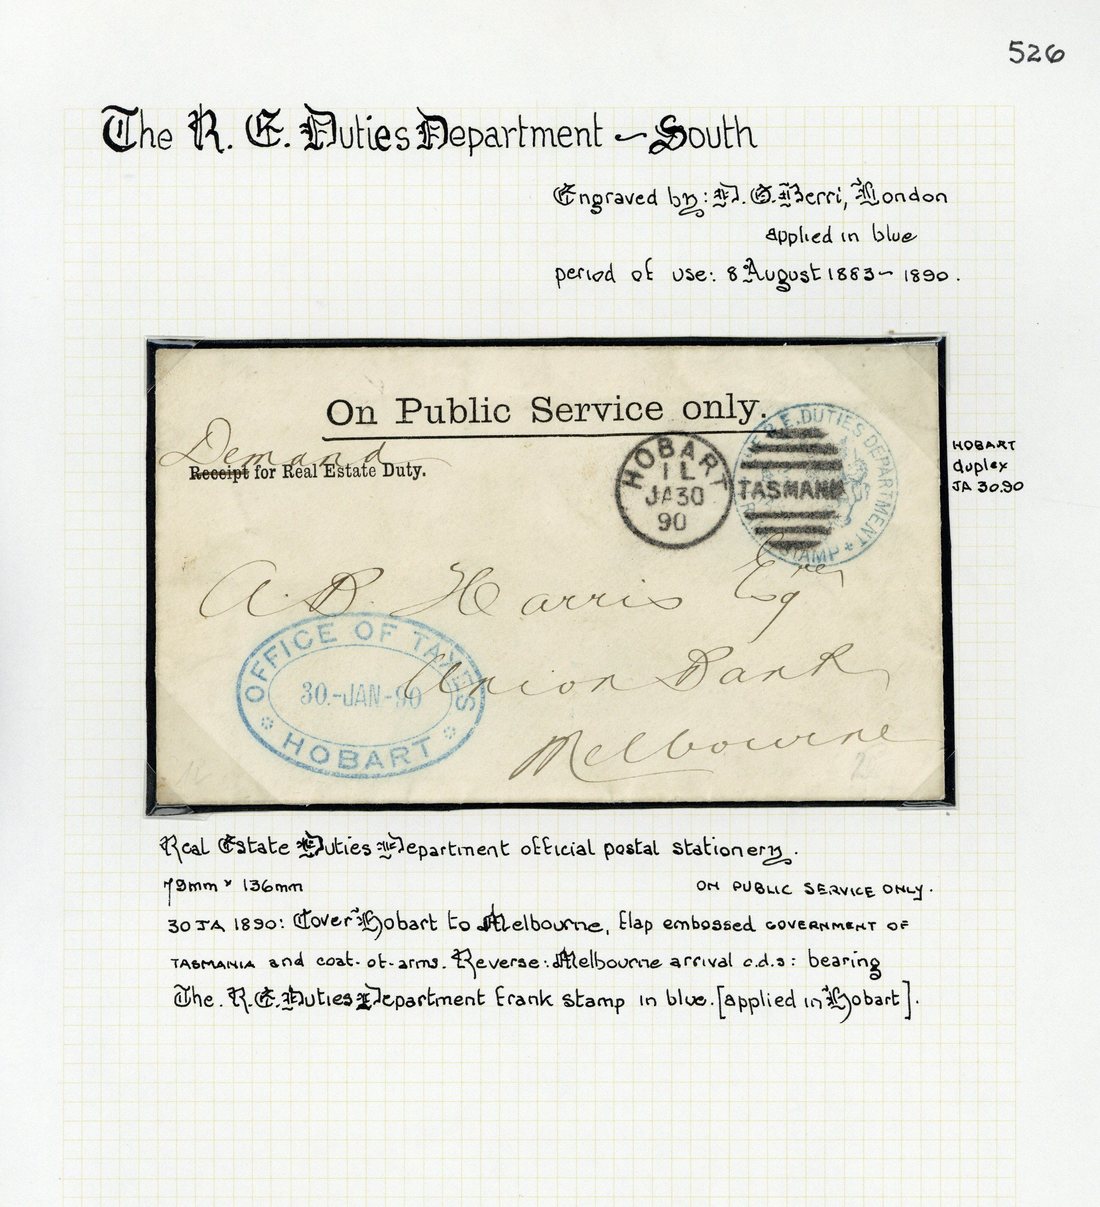 526
The R. E. Duties Department ~ South
Engraved by: D. G. Berri, London
applied in blue
period of use: 8 August 1883 ~ 1890.
On Public Service only.
Demand
Receipt for Real Estate Duty.
HOBART
1 L
JA 30
90
TASMANIA
R. E. DUTIES DEPARTMENT
STAMP
HOBART
duplex
JA 30.90
A. B. Harris Esqre
Union Bank
Melbourne
OFFICE OF TAXES
30.-JAN-90
HOBART
Real Estate Duties Department official postal stationery.
79mm x 136mm
ON PUBLIC SERVICE ONLY.
30 JA 1890: Cover Hobart to Melbourne, flap embossed GOVERNMENT OF
TASMANIA and coat-of-arms. Reverse: Melbourne arrival c.d.s: bearing
The R. E. Duties Department frank stamp in blue. [applied in Hobart].